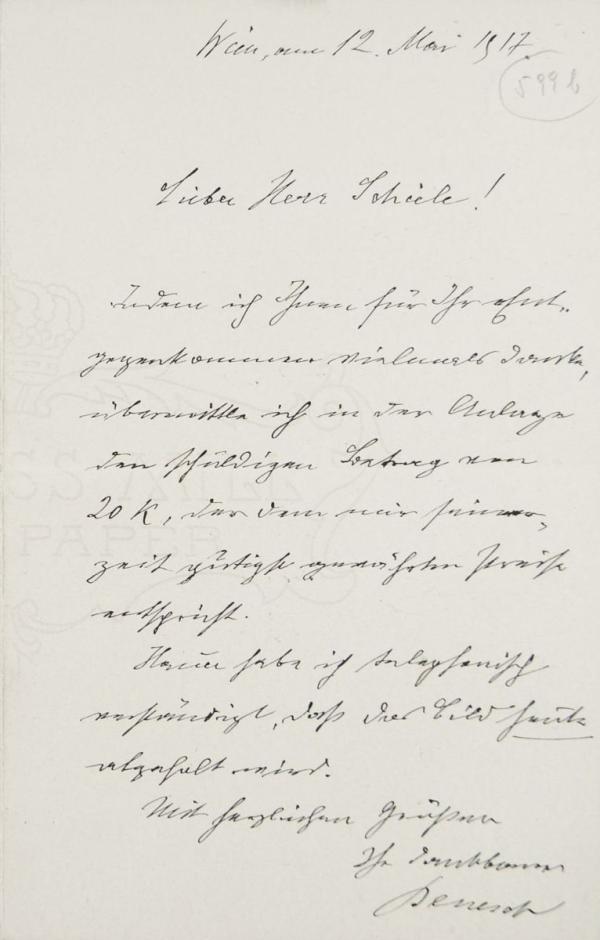 Wien, am 12. Mai 1917.
599b
Lieber Herr Schiele!
Indem ich Ihnen für Ihr Ent-
gegenkommen vielmals danke,
übermittle ich in der Anlage
den schuldigen Betrag von
20 K, der dem mir seiner-
zeit gütigst gewährten Preise
entspricht.
Hauer habe ich telephonisch
verständigt, daß das Bild heute
abgeholt wird.
Mit herzlichen Grüßen
Ihr dankbarer
Benesch
PAPER